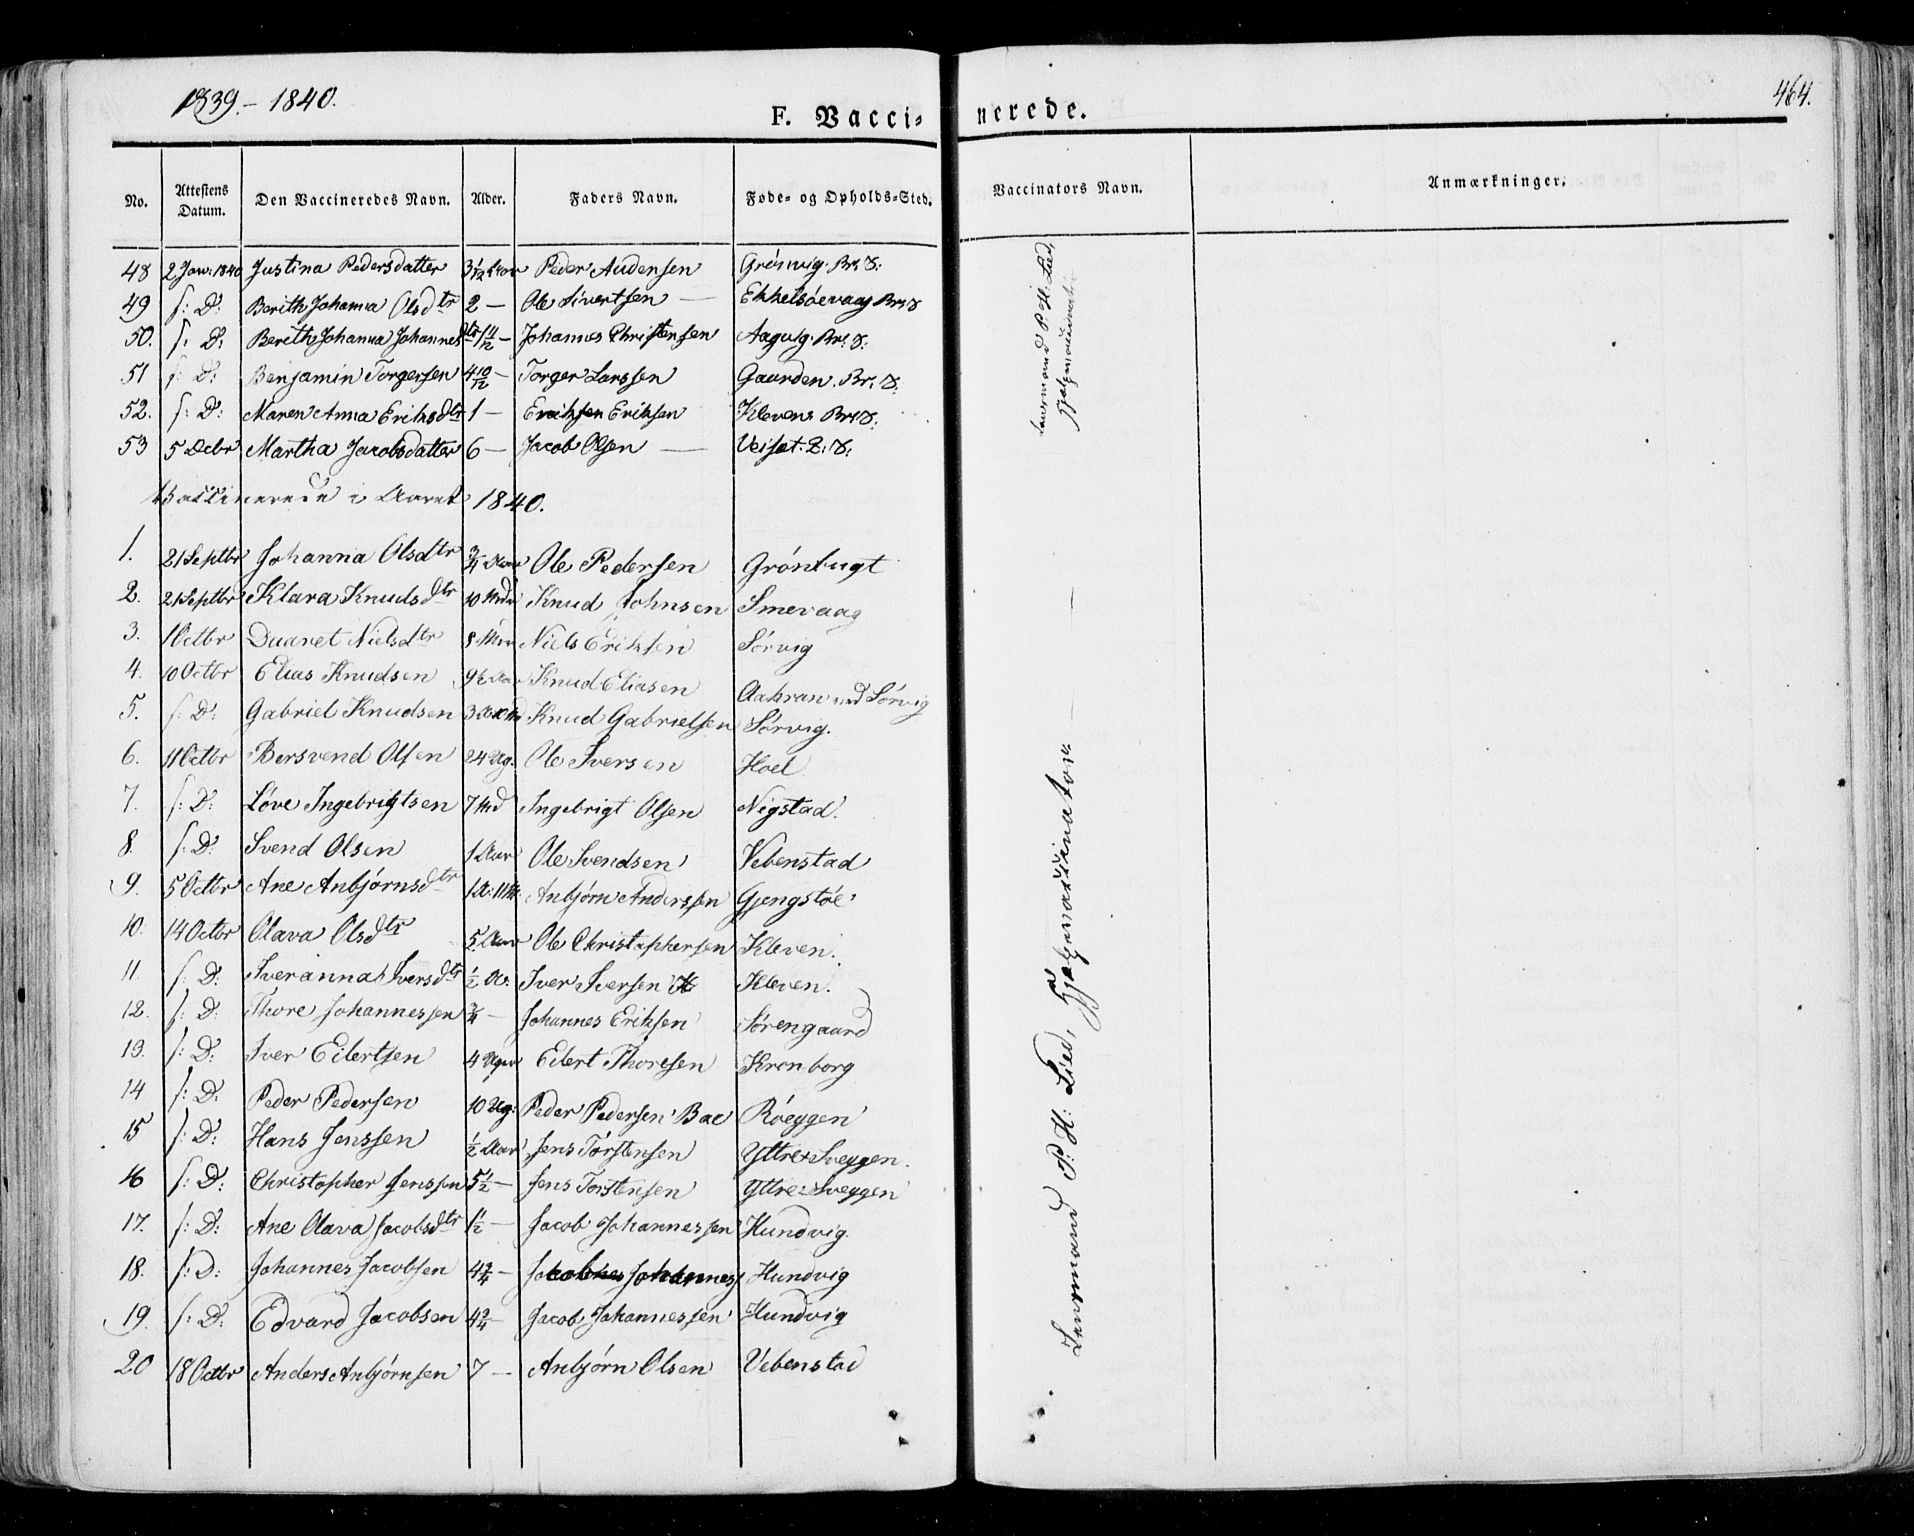 1839.- 1840.
464.
F. Vaccinerede.
No. Attestens Datum. Den Vaccineredes Navn. Alder. Faders Navn. Føde- og Opholds-Sted. Vaccinators Navn. Anmærkninger.
48 2 Jan: 1840 Justina Pedersdatter 3 1/12 Aar Peder Audensen Grönvig. Br: S:
49 s: D: Berith Johanna Olsdtr 2 — Ole Sivertsen — Ekkelsöevaag Br: S
50. s: D: Berith Johanna Johannesdtr 11/12 — Johannes Christensen Br: S:
51 s: D: Benjamin Torgersen 4 10/12 — Torger Larssen Gaarden. Br: S:
52. s: D: Maren Anna Eriksdtr 1 — Eriksen Eriksen Klevene Br: S:
53 5 Decbr Martha Jacobsdatter 6 — Jacob Olsen — Veiset: S:
Lensmand P: H: Lied, Hjelpevaccinateur
Vaccinerede i Aaret 1840.
1. 21 Septbr Johanna Olsdtr 3/4 Aar Ole Pedersen Grönbugt
2. 21 Septbr Klara Knudsdtr 10 Mdr Knud Johnsen Smevaag
3. 1 Octbr Daaret Nielsdtr 8 Niels Eriksen Sörvig
4. 10 Octbr Elias Knudsen 9 1/2 Aar Knud Eliasen Aakran ved Sörvig
5. s: D: Gabriel Knudsen 3 Knud Gabrielsen Sörvig.
6. 11 Octbr Bersvend Olsen 24 Ug. Ole Iversen Hoel
7. s: D: Löve Ingebrigtsen 7 Md Ingebrigt Olsen Nigstad.
8. s: D: Svend Olsen 1 Aar Ole Svendsen Vebenstad
9. 5 Octbr Ane Anbjörnsdtr 1 A: 11 M: Anbjörn Anderssen Gjengstöe
10. 14 Octbr Olava Olsdtr 5 Aar Ole Christophersen Kleven.
11. s: D: Iveranna Iversdtr 1/2 A: Iver Iversen Kleven.
12. s: D: Thore Johannessen 3/4 — Johannes Eriksen Sörengaard
13. s: D: Iver Eilertsen 4 Uger Eilert Thoresen Kronborg
14 s: D: Peder Pedersen 10 Ug: Peder Pedersen Bae Röeggen
15 s: D: Hans Jenssen 1/2 Aar Jens Törstensen Yttre Sveggen.
16 s: D: Christopher Jenssen 5 1/2 — Jens Torstensen Yttre Sveggen
17. s: D: Ane Olava Jacobsdtr 1 1/2 — Jacob Johannessen Hundvig.
18. s: D: Johannes Jacobsen 4 3/4 — Johannes Hundvig
19. s: D: Edvard Jacobsen 4 3/4 Jacob Johannessen Hundvig
20 18 Octbr Anders Anbjörnsen 7 — Anbjörn Olsen Vebenstad
Lensmand P: H: Lied, Hjelpevaccinateur